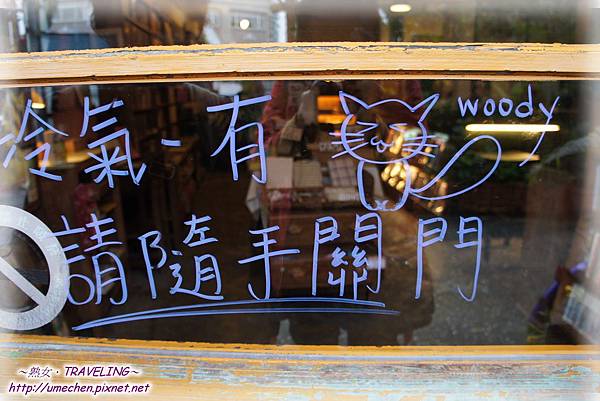 冷氣-有
woody
請隨手關門
~熟女・TRAVELING~
http://umechen.pixnet.net